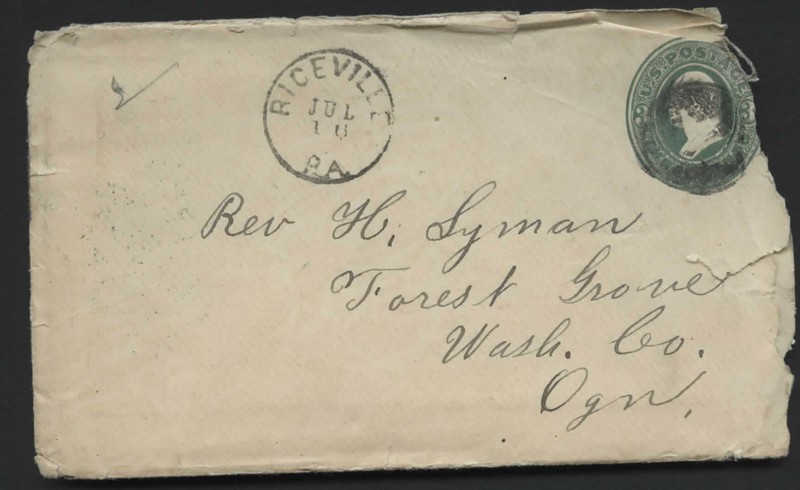 RICEVILLE
JUL
PA.
U.S. POSTAGE
Rev H. Lyman
Forest Grove
Wash. Co.
Ogn.